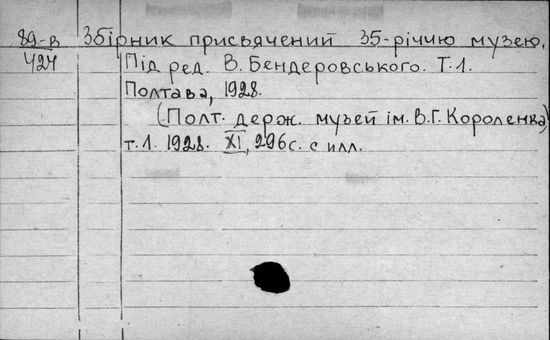 89-в Збірник присвячений 35-річчю музею.
424 Під ред. В. Бендеровського. Т.1.
Полтава, 1928.
(Полт. держ. музей ім. В.Г. Короленка)
т.1. 1928. XI, 296с. с илл.